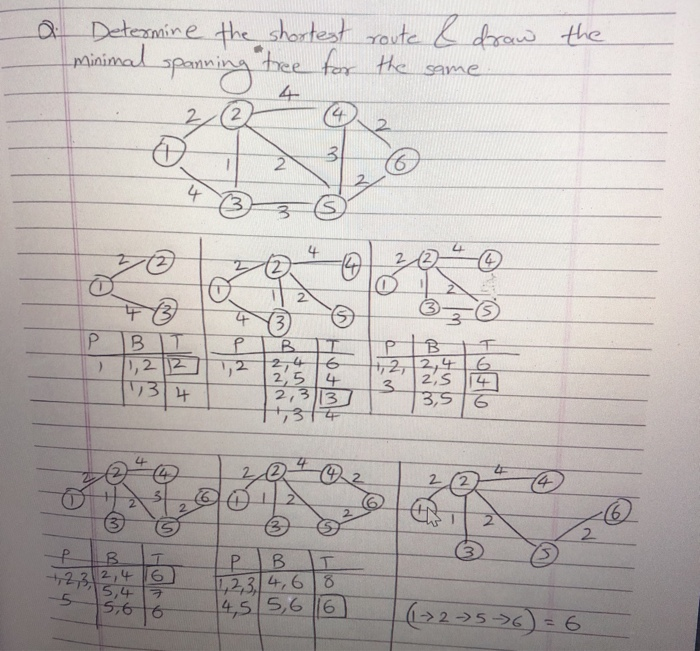 Q. Determine the shortest route & draw the
minimal spanning tree for the same
4
2 2 4 2
1 1 2 3 6
4 2
3 3 5
2 2 2 2 4 4 2 2 4 4
1 1 1 2 1 1 2
4 3 4 3 5 3 3 5
P B T P B T P B T
1 1,2 2 1,2 2,4 6 1,2, 2,4 6
1,3 4 2,5 4 3 2,5 4
2,3 3 3,5 6
1,3 4
2 2 4 4 2 2 4 4 2 2 2 4 4
1 1 2 3 2 6 1 1 2 2 6 1 1 2 2 6
3 5 3 5 3 5
P B T P B T
1,2,3, 2,4 6 1,2,3, 4,6 8
5 5,4 7 4,5 5,6 6
5,6 6
(1→2→5→6) = 6